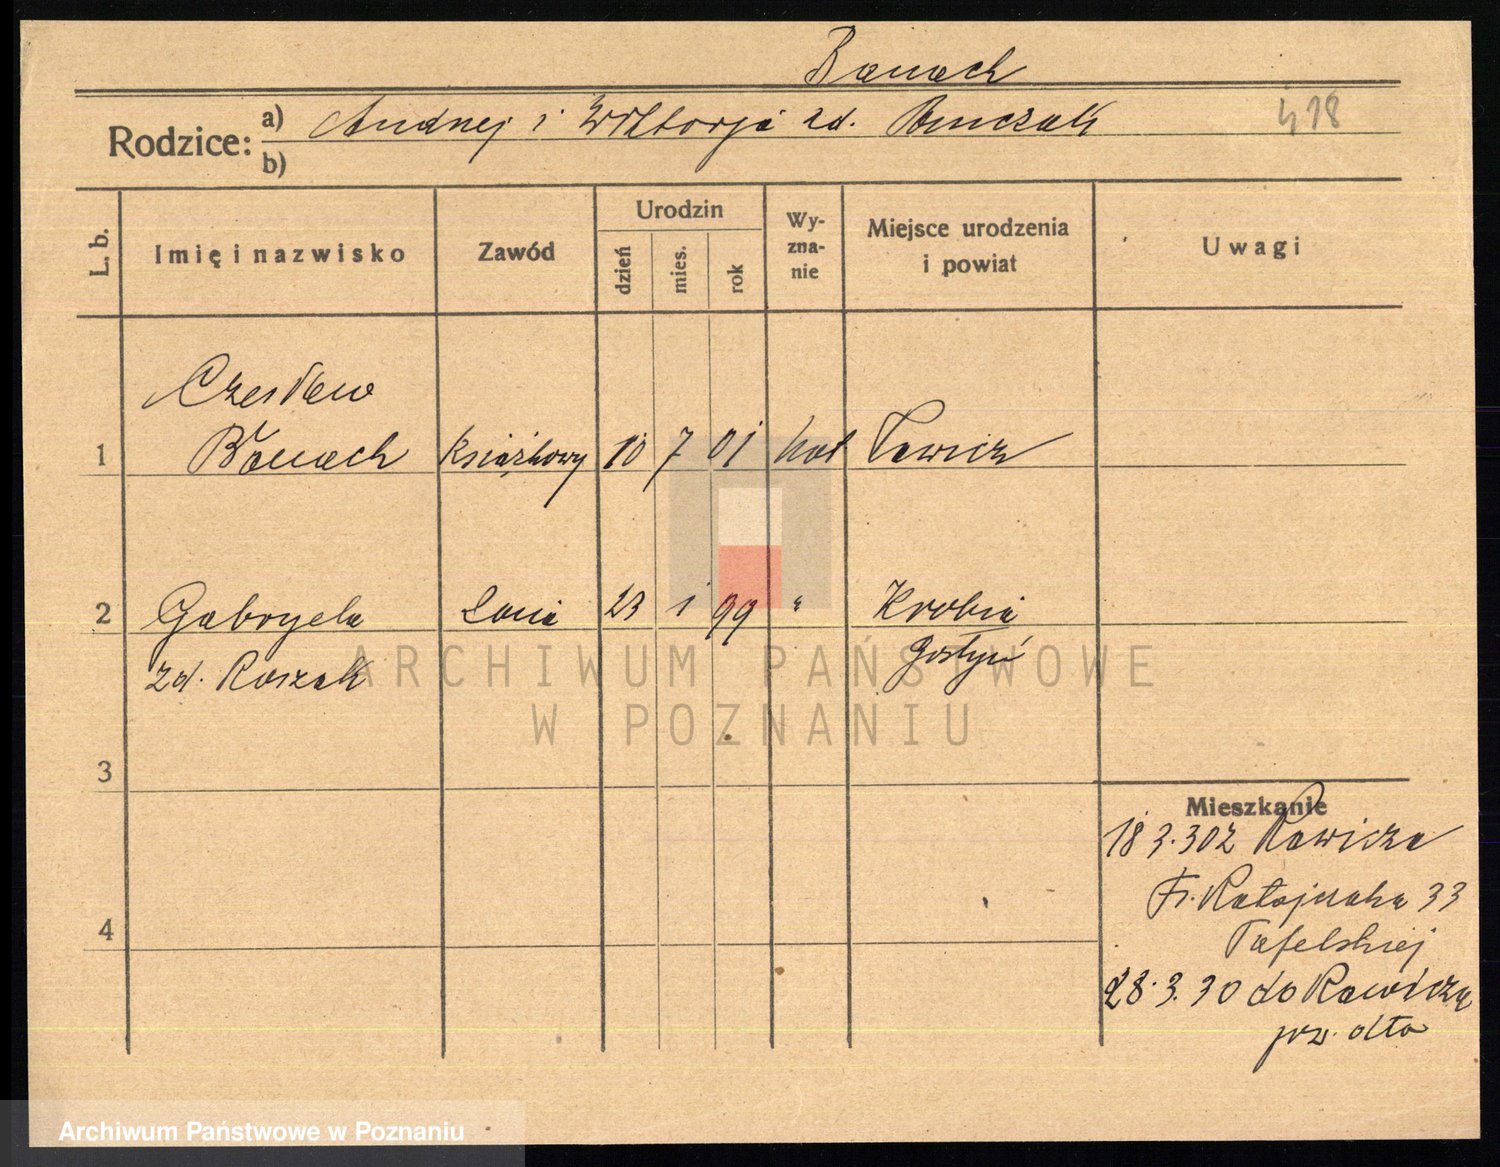 Banach
Rodzice: a) Andrzej i Wiktorja zd.
b)
418
L. b.
Imię i nazwisko
Zawód
Urodzin
dzień
mies.
rok
Wy-
zna-
nie
Miejsce urodzenia
i powiat
Uwagi
Czesław
1 Banach książkowy 10 7 01 kat
2 Gabryela żona 23 1 99 " Krobia
zd. Roszak Gostyń
3
4
Mieszkanie
18 3.30 z Rawicza
Fr. Ratajczaka 33
28.3.30 do Rawicza
ARCHIWUM PAŃSTWOWE
W POZNANIU
Archiwum Państwowe w Poznaniu